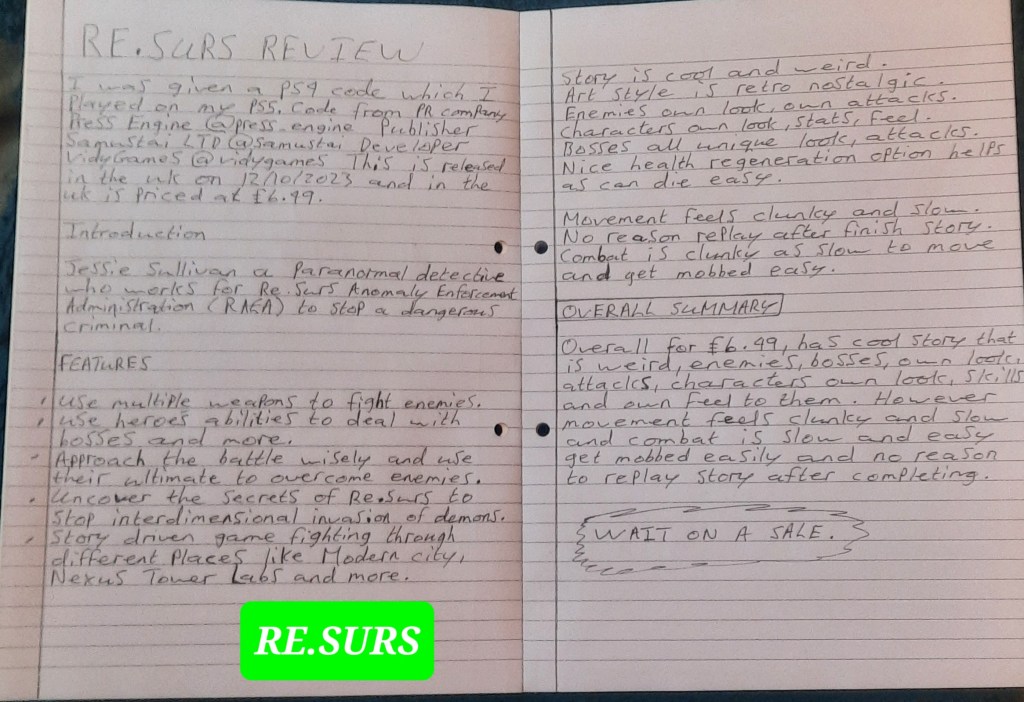 RE.SURS REVIEW
I was given a PS4 code which I
Played on my PS5. Code from PR company
Press Engine @press.engine Publisher
Samustai LTD @Samustai Developer
VidyGames @vidygames This is released
in the uk on 12/10/2023 and in the
uk is priced at £6.49.
Introduction
Jessie Sullivan a Paranormal detective
who works for Re.Surs Anomaly Enforcement
Administration (RAEA) to stop a dangerous
criminal.
FEATURES
• Use multiple weapons to fight enemies.
• Use heroes abilities to deal with
bosses and more.
• Approach the battle wisely and use
their ultimate to overcome enemies.
• Uncover the secrets of Re.Surs to
stop interdimensional invasion of demons.
• Story driven game fighting through
different Places like Modern city,
Nexus Tower Labs and more.
RE.SURS
Story is cool and weird.
Art style is retro nostalgic.
Enemies own look, own attacks.
Characters own look, stats, feel.
Bosses all unique look, attacks.
Nice health regeneration option helps
as can die easy.
Movement feels clunky and slow.
No reason replay after finish story.
Combat is clunky as slow to move
and get mobbed easy.
OVERALL SUMMARY
Overall for £6.49, has cool story that
is weird, enemies, bosses, own look,
attacks, characters own look, skills
and own feel to them. However
movement feels clunky and slow
and combat is slow and easy
get mobbed easily and no reason
to replay story after completing.
WAIT ON A SALE.